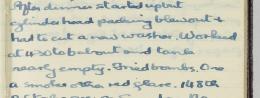 After dinner started up but
cylinder head packing blew out &
had to cut a new washer. Worked
at 4.30 to about and tank
nearly empty. Fried bombs. One
a smoke other red glare. 148th